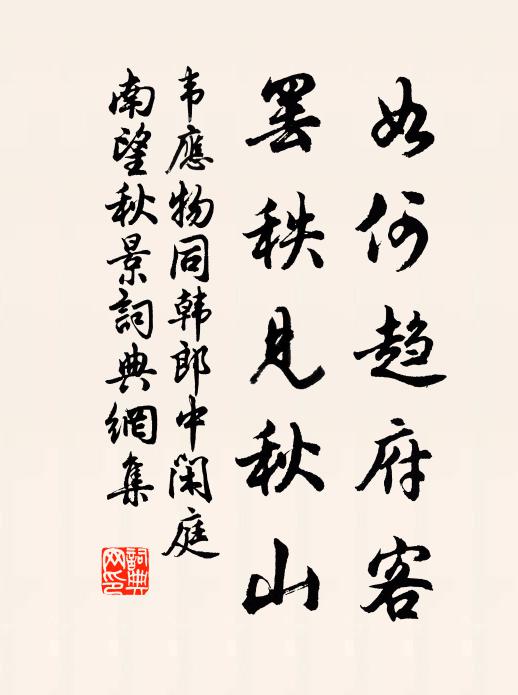 如何趋府客
罢秩见秋山
韦應物同韩郎中闲庭
南望秋景詞典網集
詞典网印